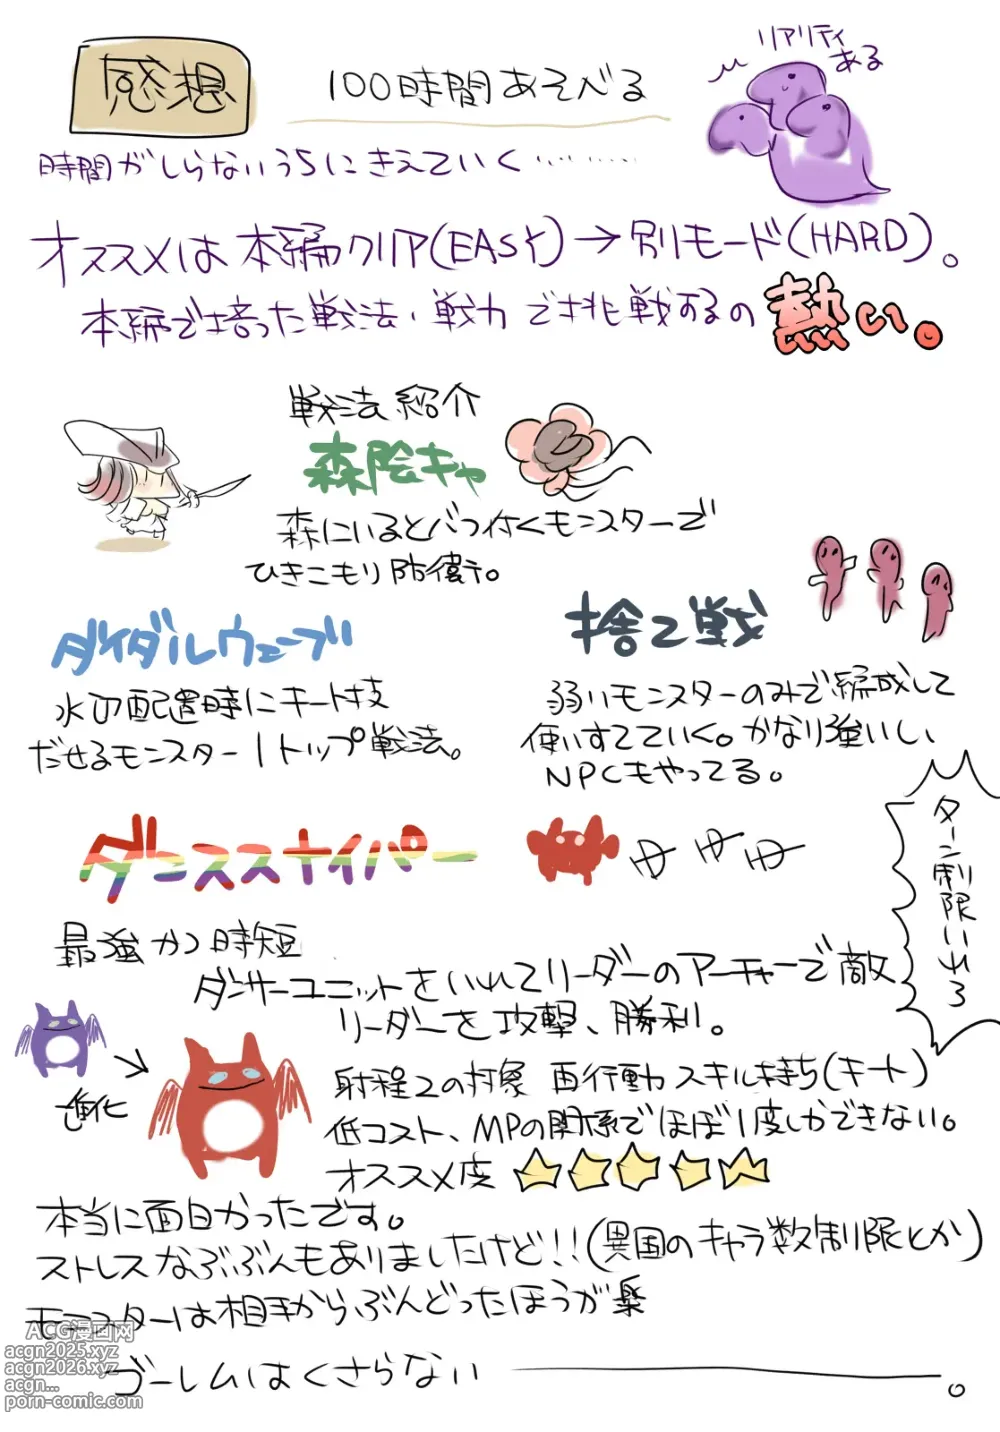 感想
100時間あそべる
リアリティ
ある
時間がしらないうちにきえていく…………
オススメは本編クリア(EASY)→別モード(HARD)。
本編で培った戦法・戦力で挑戦するの熱い。
戦法紹介
森陰キャ
森にいるとバフ付くモンスターで
ひきこもり防衛。
ダイダルウェーブ
水の配置時にキート技
だせるモンスター1トップ戦法。
捨て戦
弱いモンスターのみで編成して
使いすてていく。かなり強いし、
NPCもやってる。
ダンススナイパー
ターン制限いれろ
最強かつ時短
ダンサーユニットをいれてリーダーのアーチャーで敵
リーダーを攻撃、勝利。
進化
射程2の対象 再行動スキル持ち(キート)
低コスト、MPの関係でほぼ1度しかできない。
オススメ度
本当に面白かったです。
ストレスなぶぶんもありましたけど!!(異国のキャラ数制限とか)
モンスターは相手からぶんどったほうが楽
ゴーレムはくさらない
ACG漫画网
acgn2025.xyz
acgn2026.xyz
acgn...
porn-comic.com